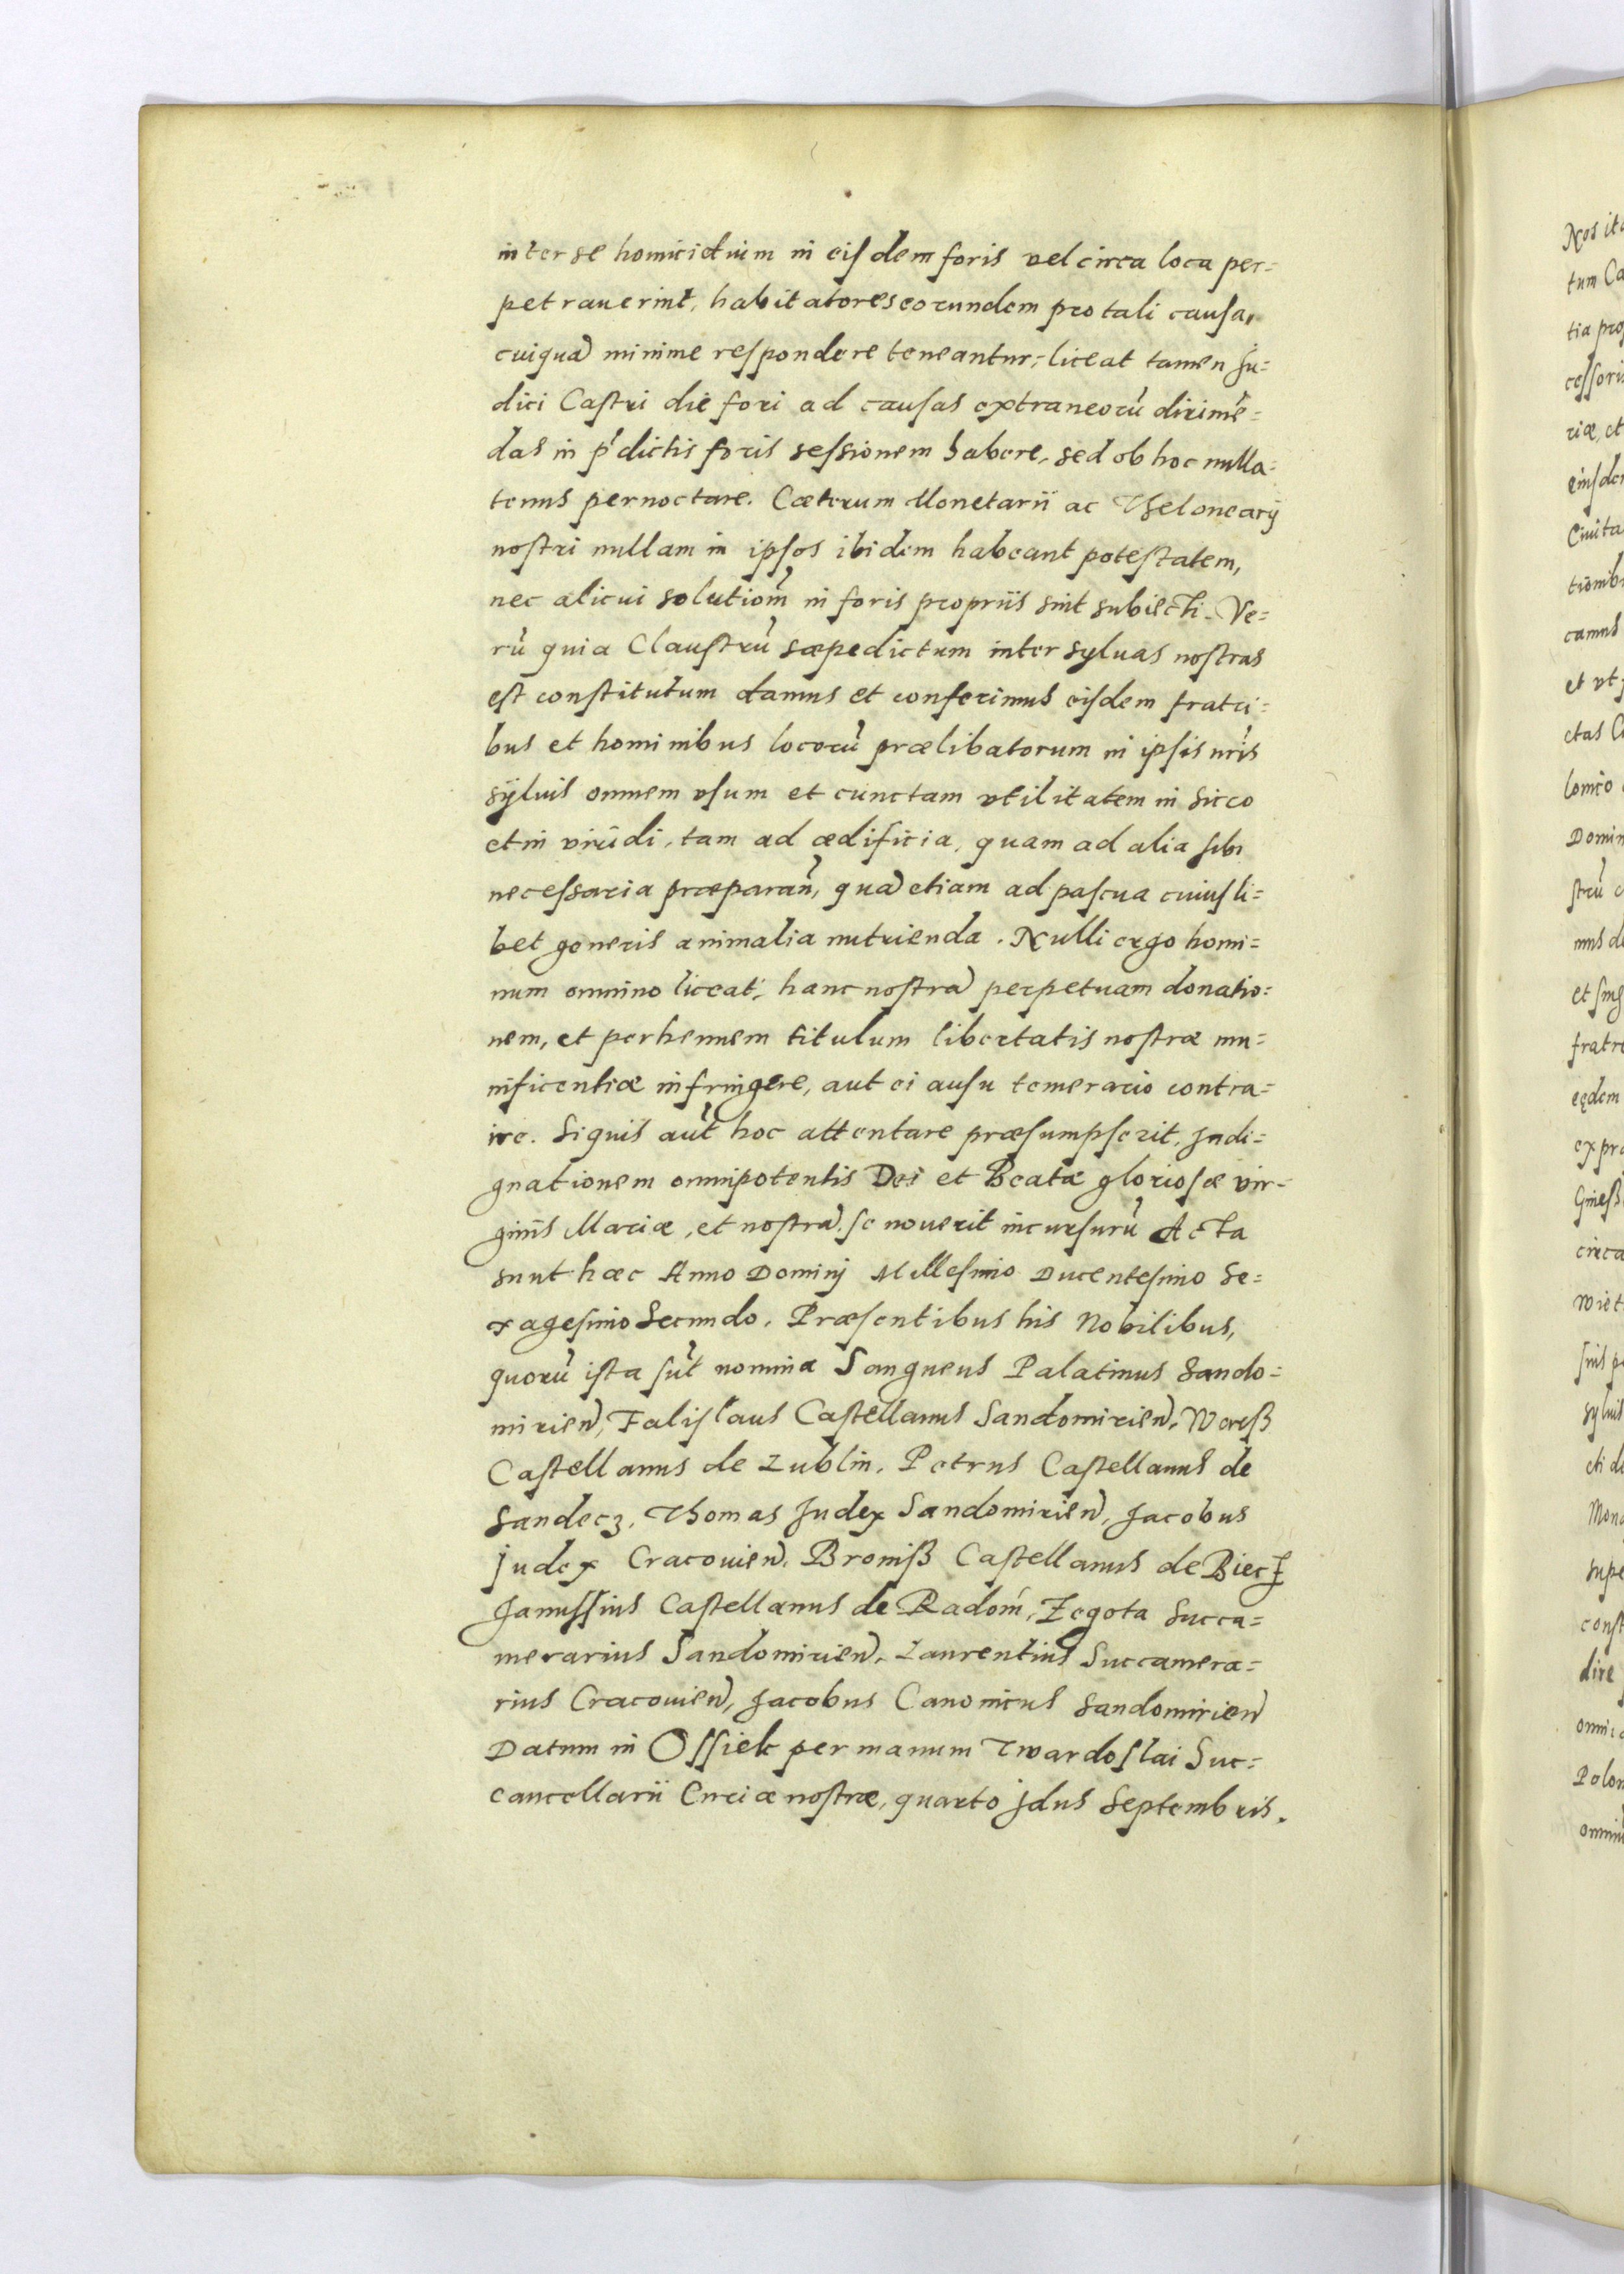 inter se homicidium in eisdem foris vel circa loca per=
petraverint, habitatores eorundem pro tali causa,
cuiquã minime respondere teneantur, liceat tamen Ju=
dici Castri die fori ad causas extraneorũ dirimẽ=
das in p̃dictis foris sessionem habere, sed ob hoc nulla=
tenus pernoctare. Cæterum Monetarii ac Thelonearij
nostri nullam in ipsos ibidem habeant potestatem,
nec alicui solutioñi in foris propriis sint subiecti. Ve=
rũ quia Claustrũ sæpedictum inter syluas nostras
est constitutum damus et conferimus eisdem fratri=
bus et hominibus locorũ prælibatorum in ipsis nr̃is
syluis omnem vsum et cunctam vtilitatem in sicco
et in viridi, tam ad ædificia, quam ad alia sibi
necessaria præparañ, quã etiam ad pascua cuiusli=
bet generis animalia nutrienda. Nulli ergo homi=
num omnino liceat, hanc nostrã perpetuam donatio=
nem, et perhennem titulum libertatis nostræ mu=
nificentiæ infringere, aut ei ausu temerario contra=
ire. Siquis aũt hoc attentare præsumpserit, Indi=
gnationem omnipotentis Dei et Beatæ gloriosæ vir=
ginis Mariæ, et nostrã se noverit incursurũ Acta
sunt hæc Anno Dominj Millesimo Ducentesimo Se=
xagesimo Secundo. Præsentibus his Nobilibus,
quorũ ista sũt nomina Sangneus Palatinus Sando=
mirieñ, Falislaus Castellanus Sandomirieñ, Wereß
Castellanus de Lublin, Petrus Castellanus de
Sandecz, Thomas Judex Sandomirieñ, Jacobus
Judex Cracovieñ, Broniß Castellanus de Biecz
Janussius Castellanus de Radom, Zegota Succa=
merarius Sandomirieñ, Laurentius Succamera=
rius Cracovieñ, Jacobus Canonicus Sandomirieñ
Datum in Ossiek per manum Twardoslai Suc=
cancellarii Curiæ nostræ, quarto Jdus Septembris.